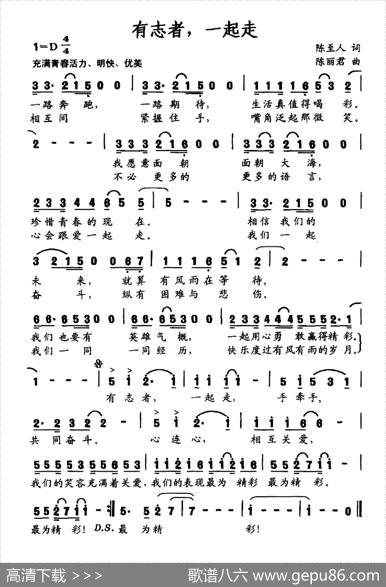 有志者，一起走
1=D 4/4
陈至人 词
充满青春活力、明快、优美
陈丽君 曲
一路奔跑， 一路期待， 生活真值得喝彩。
相互间 紧握住手， 嘴角泛起那微笑。
我愿意面朝 面朝大海，
不必更多的 更多的语言，
珍惜青春的现在。 相信我们的
心会跟爱一起走。 我们一起
未来， 就算有风雨在等待，
奋斗， 纵有困难与悲伤。
我们也要有 英雄气概， 一起用心勇敢赢得精彩。
我们一同 一同经历， 快乐度过有风有雨的岁月。
有志者， 一起走， 手牵手，
共同奋斗。 心连心， 相互关爱，
我们的笑容充满着关爱，我们的表现最为精彩 最为精彩。
最为精彩！ D.S. 最为精彩！
高清下载 >>>
歌谱八六 www.gepu86.com